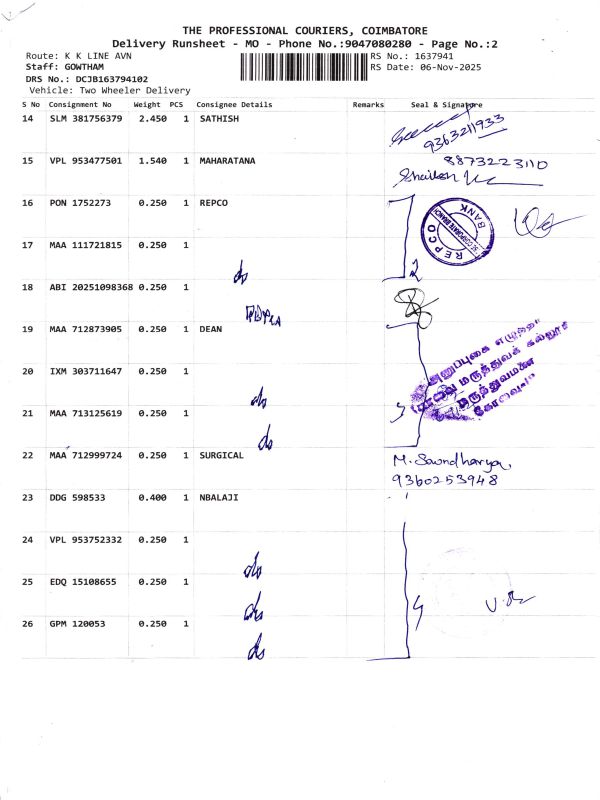 THE PROFESSIONAL COURIERS, COIMBATORE
Delivery Runsheet - MO - Phone No.:9047080280 - Page No.:2
Route: K K LINE AVN RS No.: 1637941
Staff: GOWTHAM RS Date: 06-Nov-2025
DRS No.: DCJB163794102
Vehicle: Two Wheeler Delivery
S No Consignment No Weight PCS Consignee Details Remarks Seal & Signature
14 SLM 381756379 2.450 1 SATHISH
9363211933
15 VPL 953477501 1.540 1 MAHARATANA 8873223110
16 PON 1752273 0.250 1 REPCO
REPCO BANK
17 MAA 111721815 0.250 1
2
18 ABI 20251098368 0.250 1
19 MAA 712873905 0.250 1 DEAN
அனுப்புகை
மருத்துவக்
மருத்துவமனை
கோவை
20 IXM 303711647 0.250 1
21 MAA 713125619 0.250 1
22 MAA 712999724 0.250 1 SURGICAL M. Soundharya,
9360253948
23 DDG 598533 0.400 1 NBALAJI
24 VPL 953752332 0.250 1
25 EDQ 15108655 0.250 1
26 GPM 120053 0.250 1